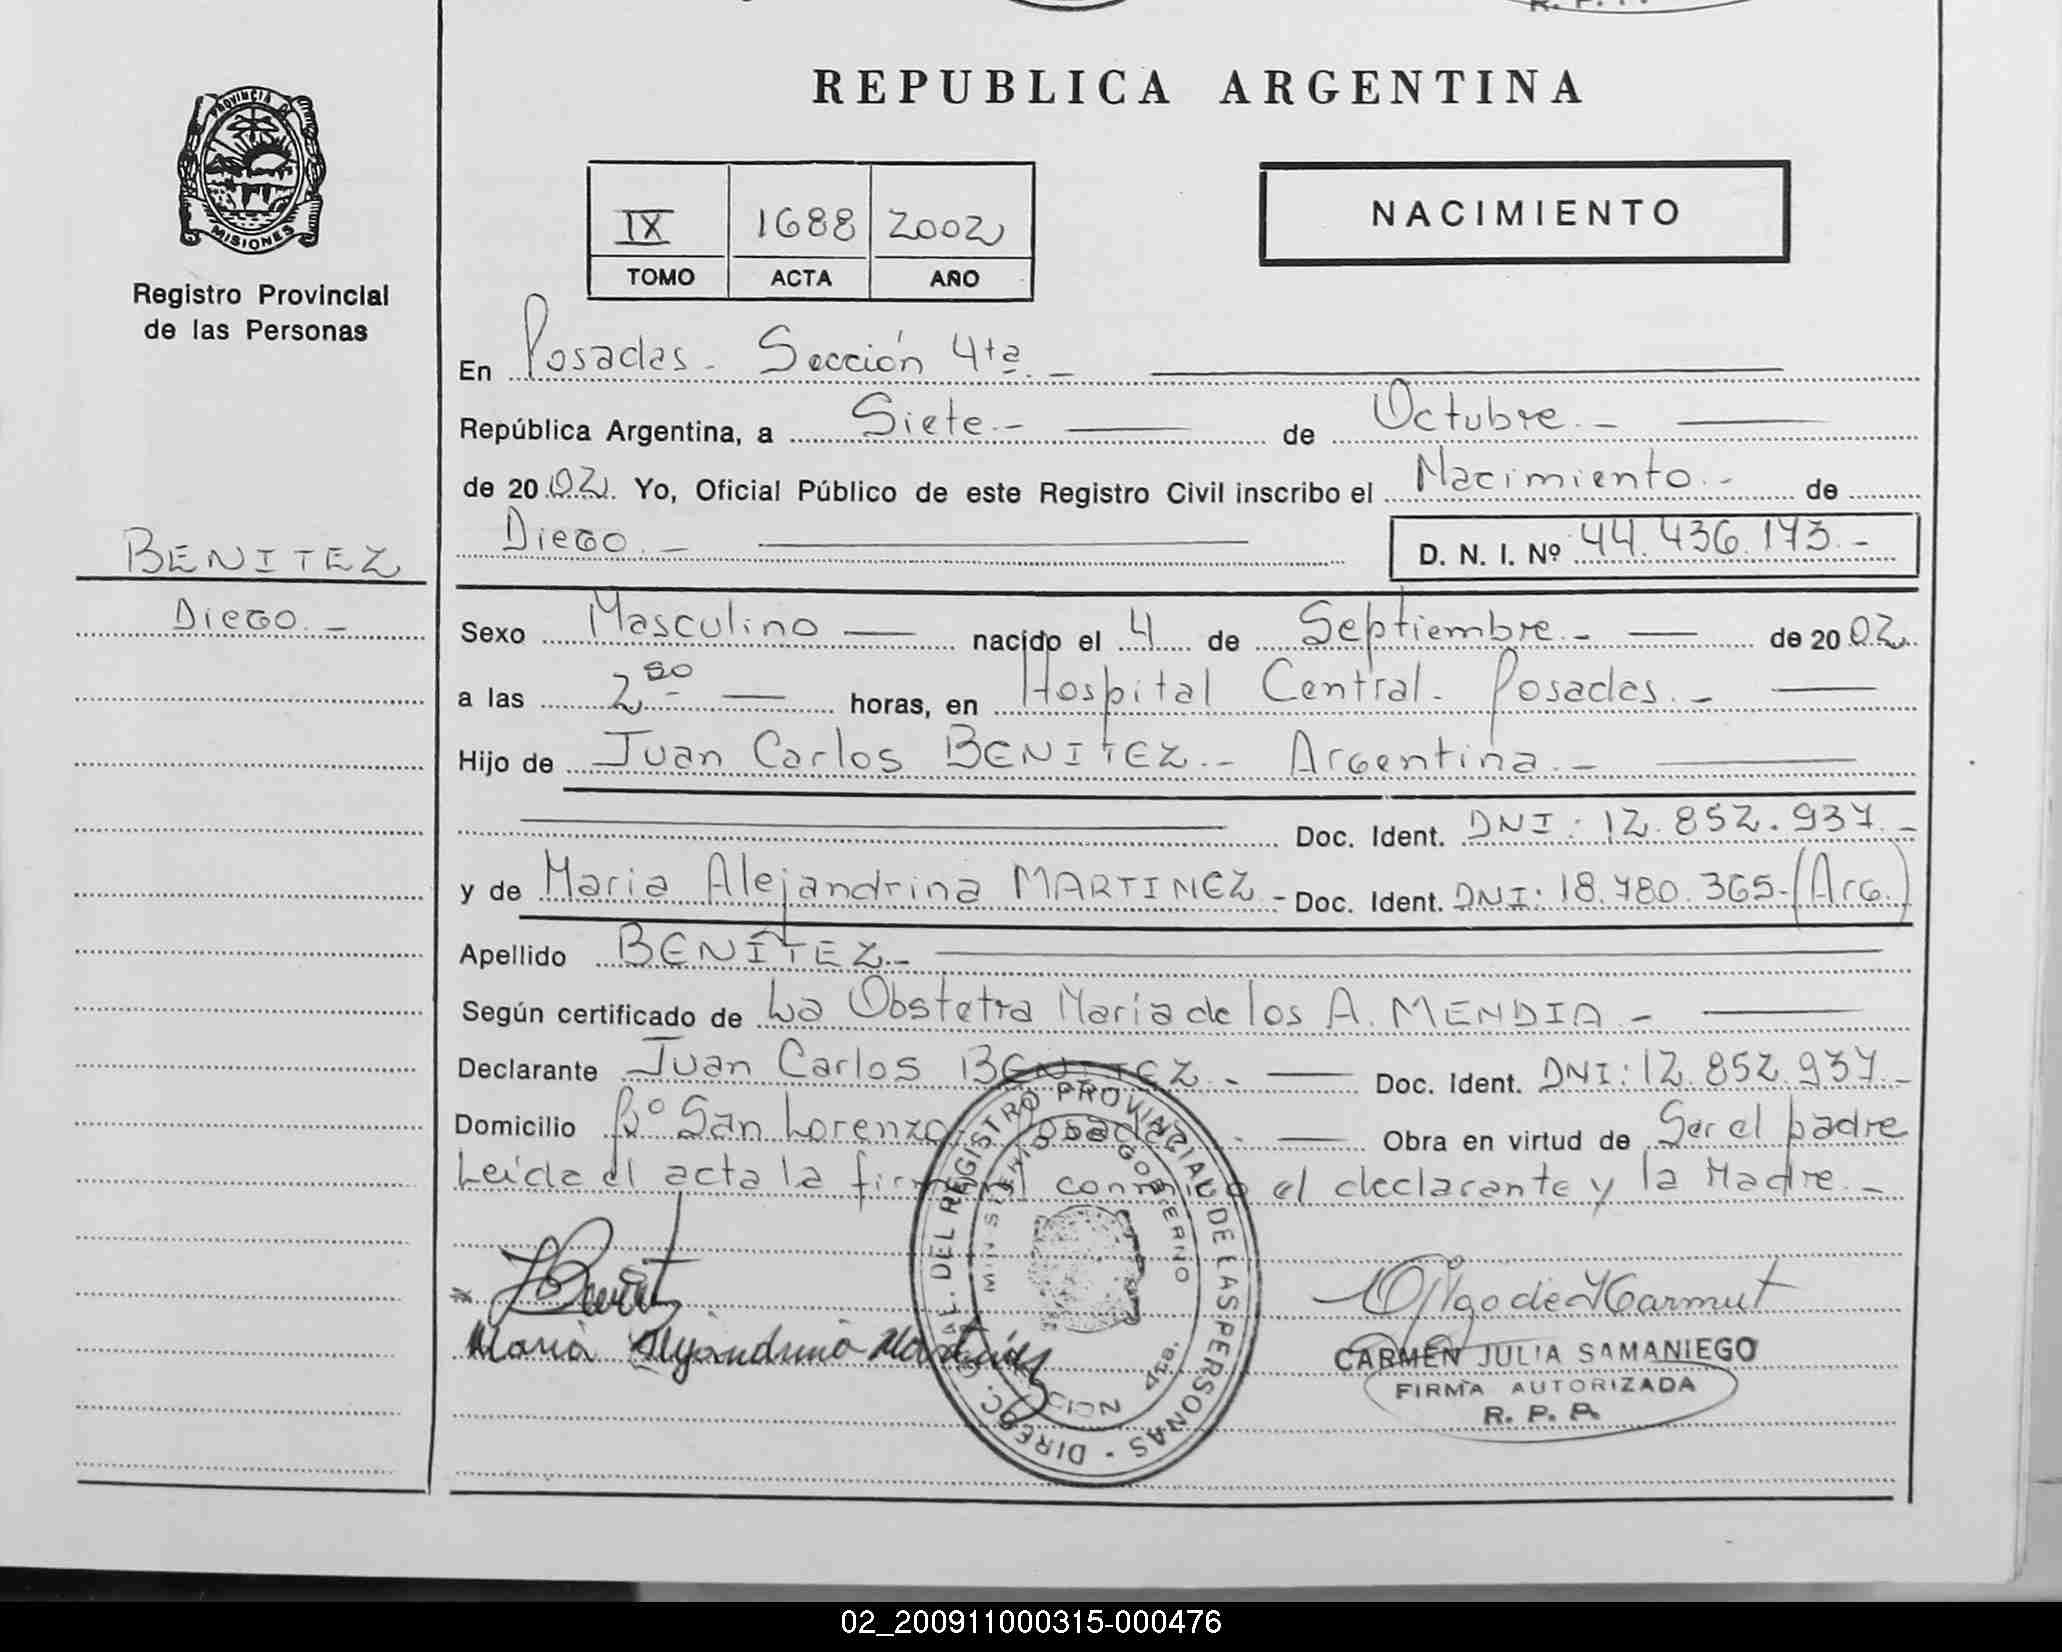 REPUBLICA ARGENTINA
PROVINCIA DE
MISIONES
Registro Provincial
de las Personas
IX 1688 2002
TOMO ACTA AÑO
NACIMIENTO
En Posadas. Sección 4ta. -
República Argentina, a Siete. - de Octubre. -
de 2002. Yo, Oficial Público de este Registro Civil inscribo el Nacimiento. - de
Diego. - D. N. I. Nº 44.436.173. -
BENITEZ
Diego. -
Sexo Masculino nacido el 4 de Septiembre. - de 2002.
a las horas, en Hospital Central. Posadas. -
Hijo de Juan Carlos BENITEZ. - Argentina. -
Doc. Ident. DNI: 12.852.937. -
y de Maria Alejandrina MARTINEZ. - Doc. Ident. DNI: 18.780.365-(Arg.)
Apellido BENÍTEZ. -
Según certificado de La Obstetra María de los A. MENDIA. -
Declarante Juan Carlos BENITEZ. - Doc. Ident. DNI: 12.852.937. -
Domicilio Bº San Lorenzo. Posadas. - Obra en virtud de Ser el padre
Leída el acta la firman conmigo el declarante y la Madre. -
Maria Alejandrina Martinez
DIREC. GRAL. DEL REGISTRO PROVINCIAL DE LAS PERSONAS -
MINISTERIO DE GOBIERNO
CARMEN JULIA SAMANIEGO
FIRMA AUTORIZADA
R. P. P.
02_200911000315-000476